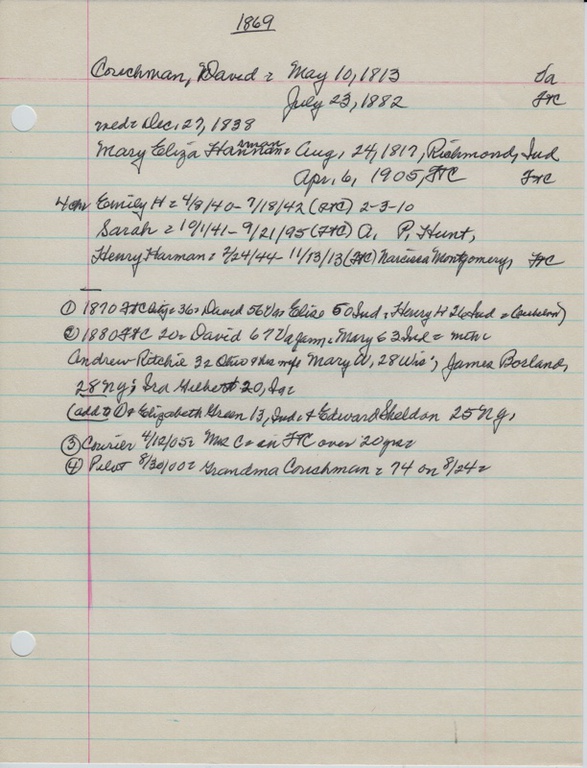 1869
Couchman, David = May 10, 1813 Va
July 23, 1882 FtC
med = Dec. 27, 1838
Mary Eliza Harman = Aug. 24, 1817, Richmond, Ind
Apr. 6, 1905, FtC FtC
4 ch Emily H = 4/8/40 - 7/18/42 (FtC) 2-3-10
Sarah = 10/1/41 - 9/21/95 (FtC) A. P. Hunt,
Henry Harman = 2/24/44 - 11/13/13 (FtC) Narcissa Montgomery, FtC
① 1870 FtC City = 36 = David 56 Va = Eliza 50 Ind = Henry H 26 Ind =
② 1880 FtC 20 = David 67 Va farm, = Mary 63 Ind =
Andrew Ritchie 32 Ohio & his wife Mary A, 28 Wis; James Borland,
28 Ny; Ira Gilbert 20, Ia =
(add to D = Elizabeth Green 13, Ind, & Edward Sheldon 25 Ny,
③ Courier 4/12/05 = Mrs C = in FtC over 20 yrs =
④ Pilot 8/30/00 = Grandma Couchman = 74 on 8/24 =